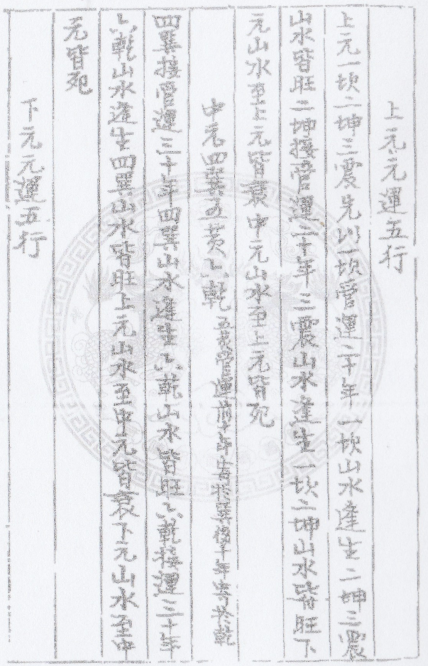 上元元運五行
上元一坎二坤三震先以一坎管運二十年一坎山水逢生二坤三震
山水皆旺二坤接管運二十年三震山水逢生一坎二坤山水皆旺下
元山水至上元皆衰中元山水至上元皆死
中元四巽五黄六乾五黄管運前十年寄於巽後十年寄於乾
四巽接管運三十年四巽山水逢生六乾山水皆旺六乾接運三十年
六乾山水逢生四巽山水皆旺上元山水至中元皆衰下元山水至中
元皆死
下元元運五行